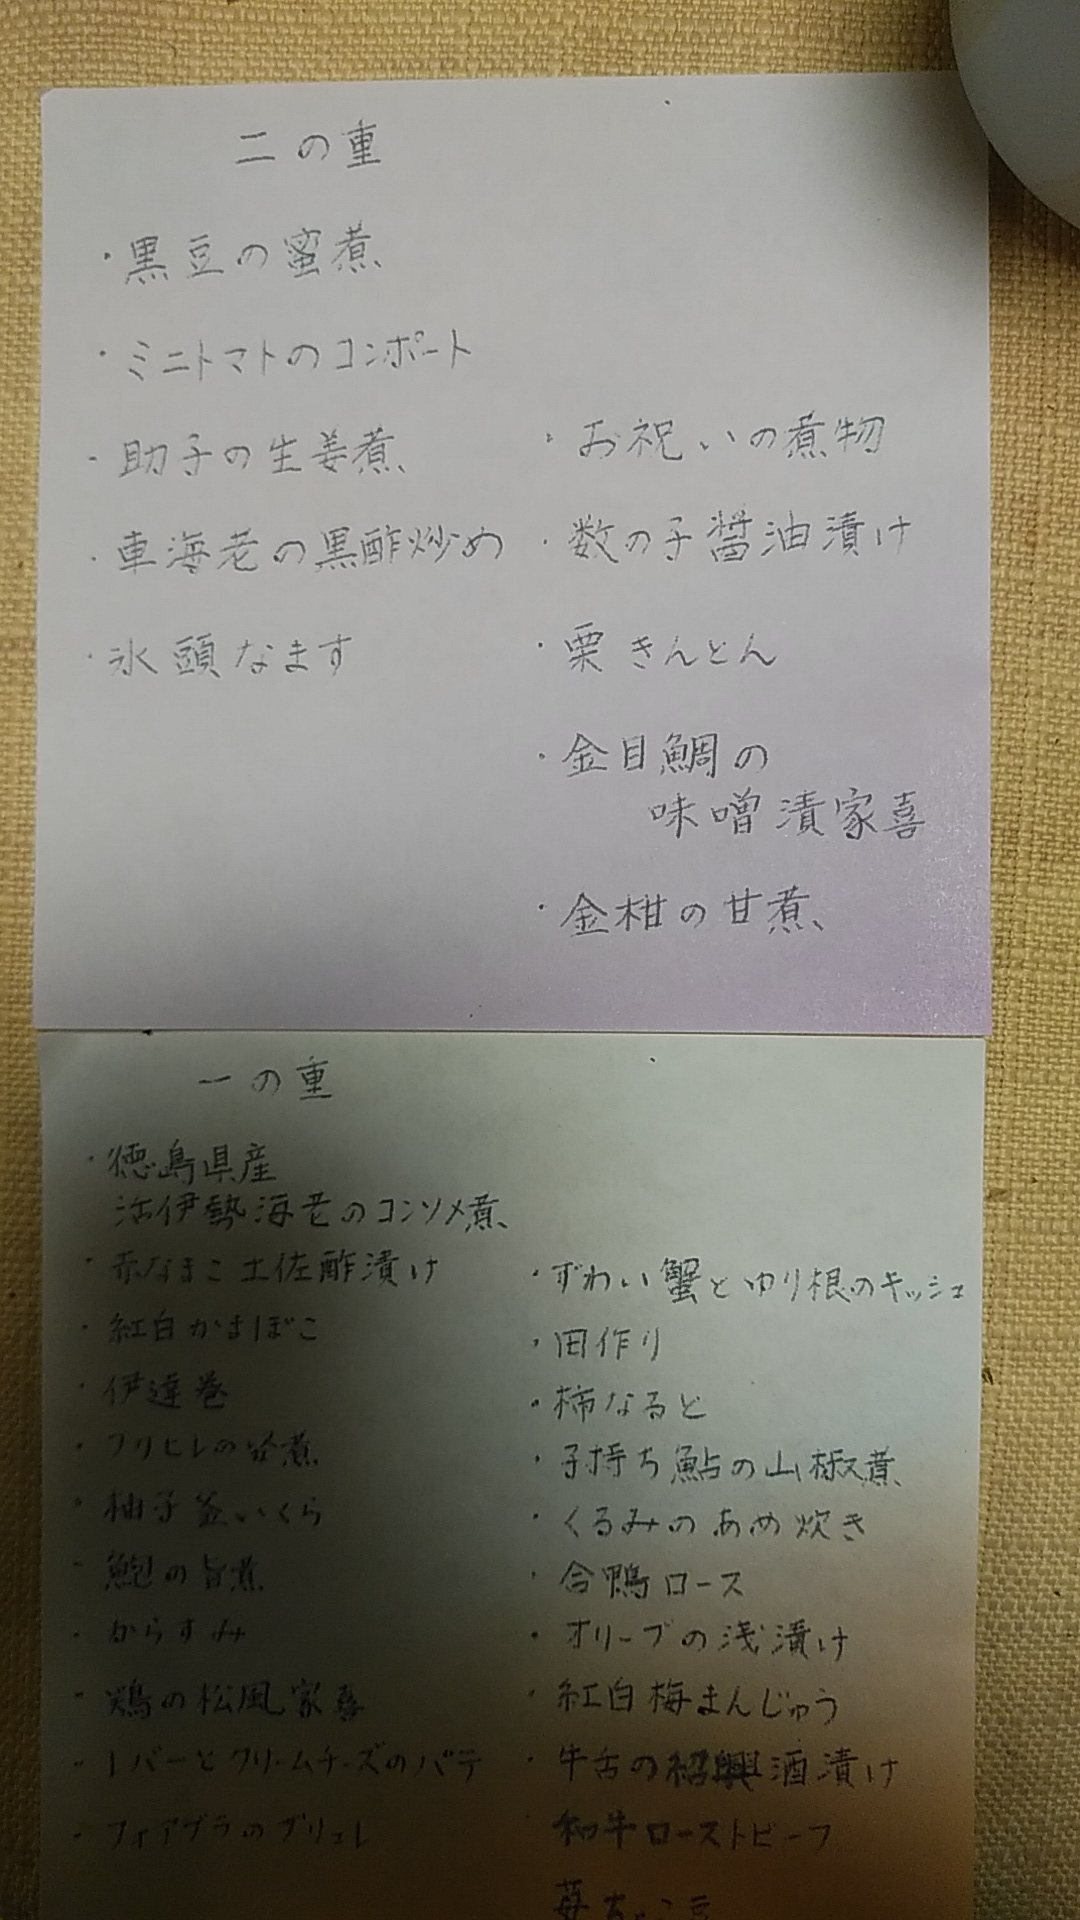 二の重
・黒豆の蜜煮
・ミニトマトのコンポート
・助子の生姜煮
・車海老の黒酢炒め
・氷頭なます
・お祝いの煮物
・数の子醤油漬け
・栗きんとん
・金目鯛の
味噌漬家喜
・金柑の甘煮
一の重
・徳島県産
活伊勢海老のコンソメ煮
・赤なまこ土佐酢漬け
・紅白かまぼこ
・伊達巻
・フカヒレの旨煮
・柚子釜いくら
・鮑の旨煮
・からすみ
・鶏の松風家喜
・レバーとクリームチーズのパテ
・フォアグラのブリュレ
・ずわい蟹とゆり根のキッシュ
・田作り
・柿なると
・子持ち鮎の山椒煮
・くるみのあめ炊き
・合鴨ロース
・オリーブの浅漬け
・紅白梅まんじゅう
・牛舌の紹興酒漬け
・和牛ローストビーフ